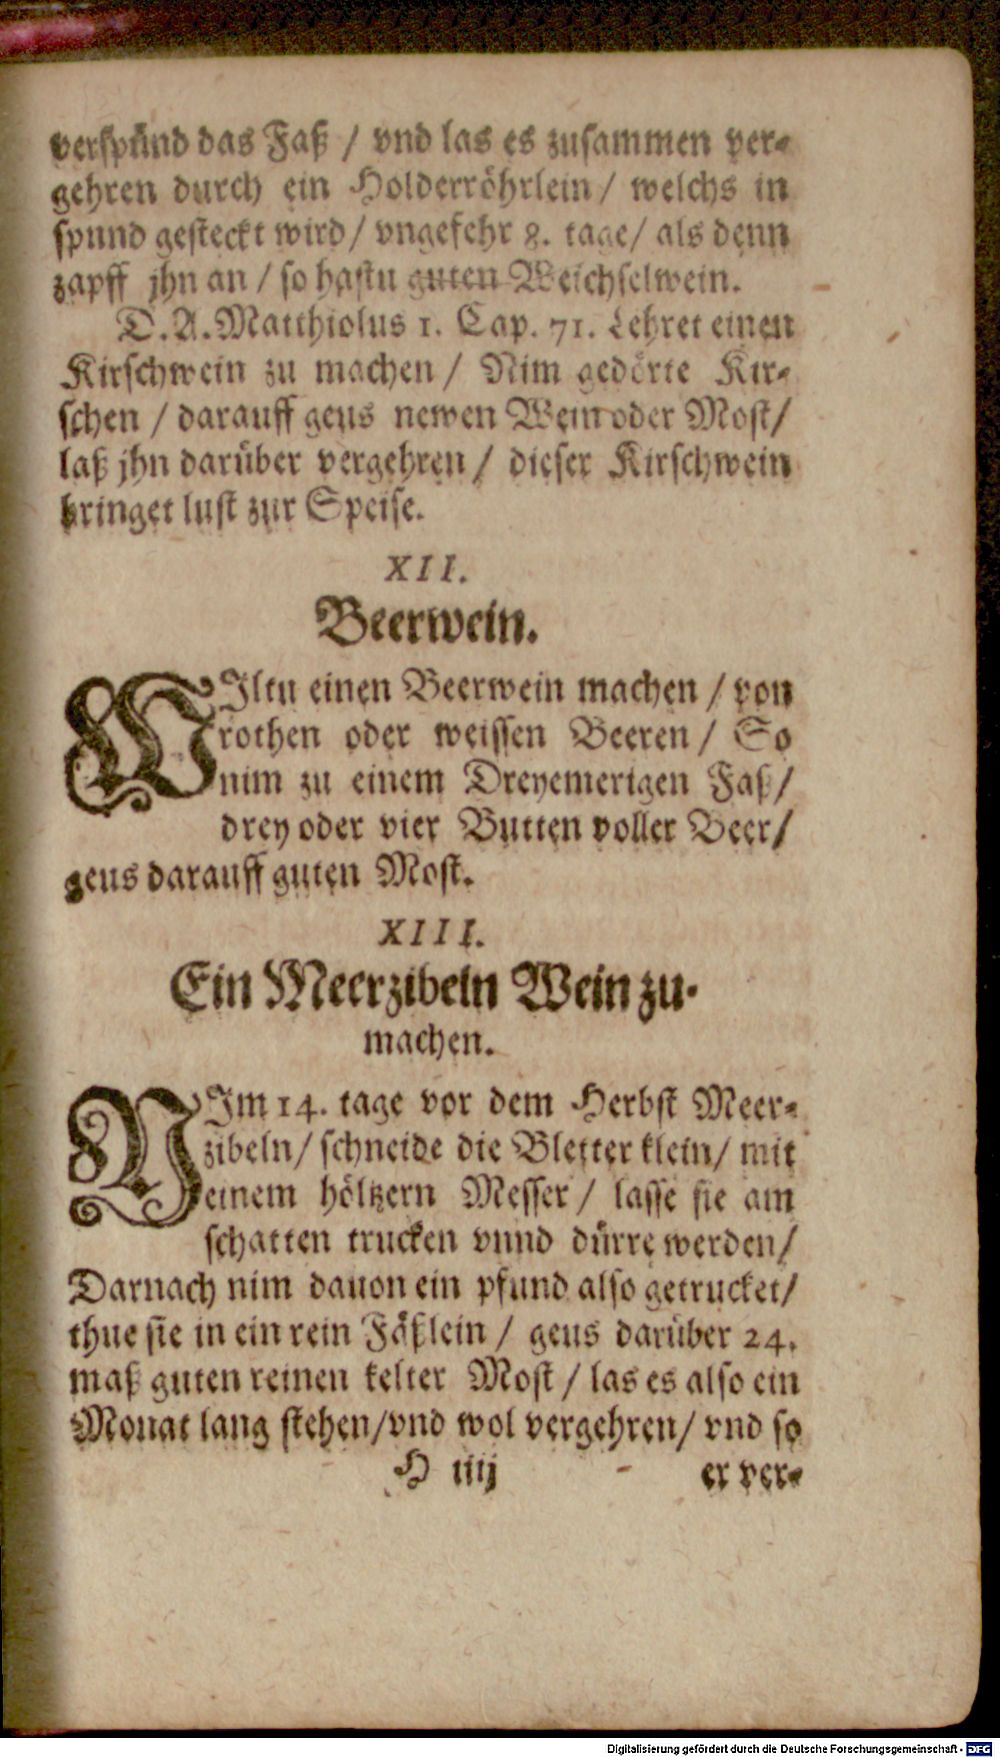 verspünd das Faß / vnd las es zusammen ver-
gehren durch ein Holderröhrlein / welchs in
spund gesteckt wird / vngefehr 8. tage / als denn
zapff jhn an / so hastu guten Weichselwein.
D. A. Matthiolus 1. Cap. 71. Lehret einen
Kirschwein zu machen / Nim gedörte Kir-
schen / darauff geus newen Wein oder Most /
laß jhn darüber vergehren / dieser Kirschwein
bringet lust zur Speise.
XII.
Beerwein.
WIltu einen Beerwein machen / von
rothen oder weissen Beeren / So
nim zu einem Dreyemerigen Faß /
drey oder vier Butten voller Beer /
geus darauff guten Most.
XIII.
Ein Meerzibeln Wein zu-
machen.
NIm 14. tage vor dem Herbst Meer-
zibeln / schneide die Bletter klein / mit
einem höltzern Messer / lasse sie am
schatten trucken vnnd dürre werden /
Darnach nim dauon ein pfund also getrucket /
thue sie in ein rein Fäßlein / geus darüber 24.
maß guten reinen kelter Most / las es also ein
Monat lang stehen / vnd wol vergehren / vnd so
H iiij er ver-
Digitalisierung gefördert durch die Deutsche Forschungsgemeinschaft - DFG